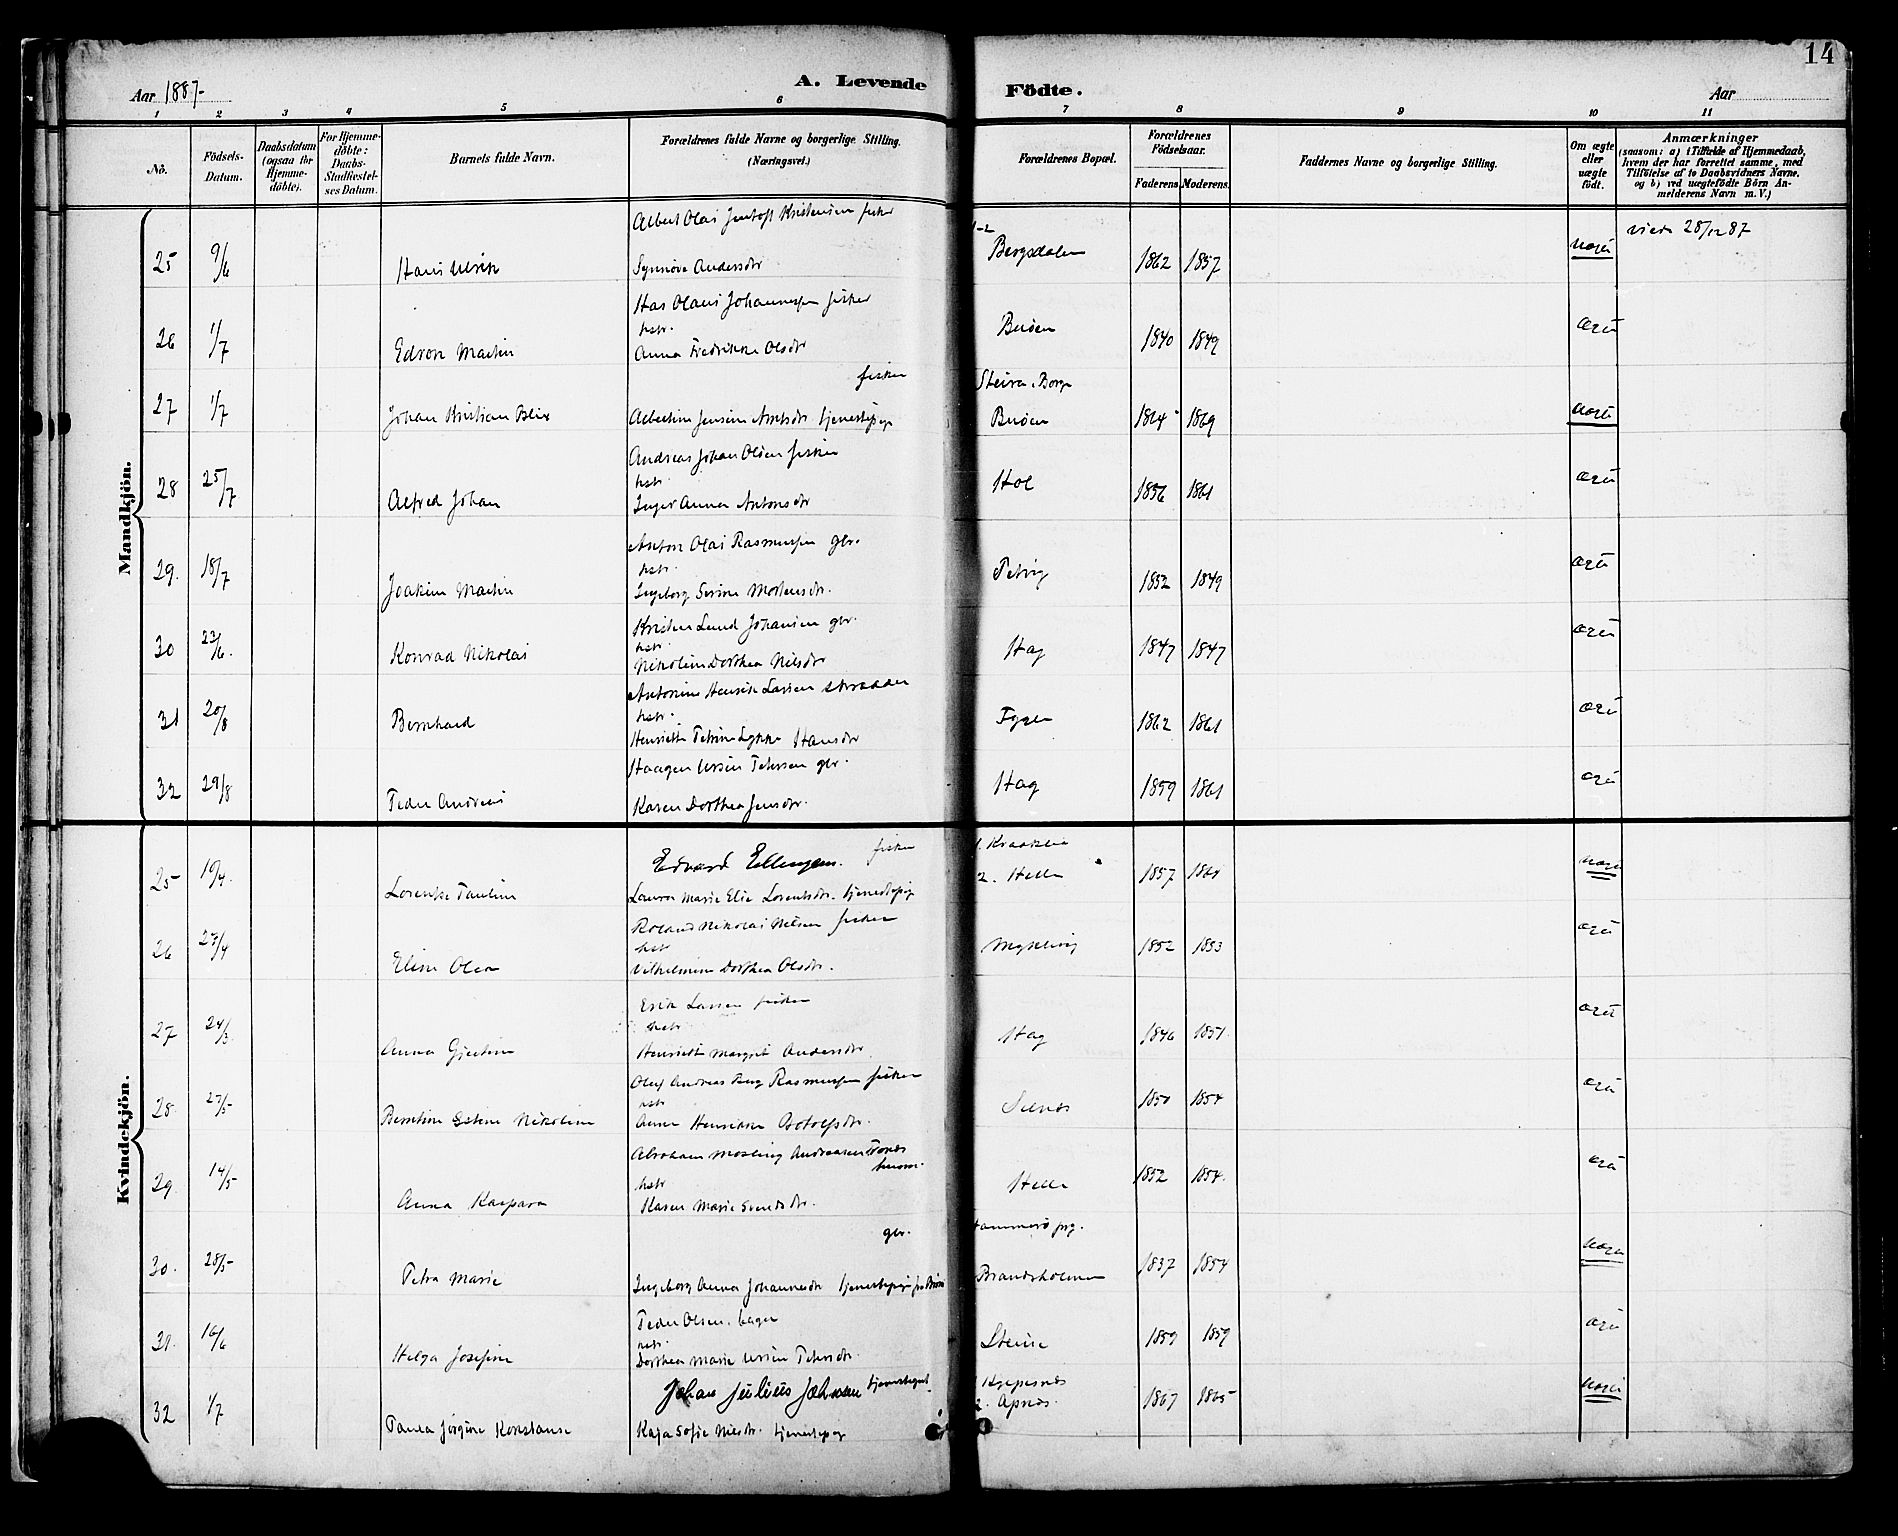 14
Aar 1887-
A. Levende
Födte.
Aar
1 2 3 4 5 6 7 8 9 10 11
No.
Födsels-
Datum.
Daabsdatum
(ogsaa for
Hjemme-
döbte).
For Hjemme-
döbte:
Daabs-
Stadfæstel-
ses Datum.
Barnets fulde Navn.
Forældrenes fulde Navne og borgerlige Stilling.
(Næringsvei.)
Forældrenes Bopæl.
Forældrenes
Födselsaar.
Faderens. Moderens.
Faddernes Navne og borgerlige Stilling.
Om ægte
eller
uægte
født.
Anmærkninger
(saasom: a) i Tilfælde af Hjemmedaab,
hvem der har forrettet samme, med
Tilföielse af to Daabsvidners Navne,
og b) ved uægtefödte Börn An-
melderens Navn m. V.)
Mandkjön.
Albert Olai Jentoft Kristensen fisker
25 9/6 Hans Ulrik Synnöve Andersdtr Bergsdalen 1862 1857 uægte viede 28/12 87
Olaus Johannessen fisker
hstr.
26 1/7 Edvon Martin Anna Fredrikke Olsdtr Buöen 1840 1849 ægte
fisker Steira i Borge
27 1/7 Johan Kristian Blix Albertine Jensine Arntsdtr tjenestepige Buöen 1864 1869 uægte
Andreas Johan Olsen fisker
hstr.
28 25/7 Alfred Johan Inger Anna Antonsdtr Hol 1856 1861 ægte
Anton Olai Rasmussen gbr.
hstr.
29. 18/7 Joakim Martin Ingeborg Serine Mortensdtr. Petvig 1852 1849 ægte
Kristen Lund Johansen gbr.
hstr.
30 23/6. Konrad Nikolai Nikoline Dorthea Nilsdtr Hag 1847 1847 ægte
Antonius Henrik Larsen skrædder
hstr.
31 20/8 Bernhard Henriette Petrine Lykke Hansdtr Fygle 1862 1861 ægte
Haagen Ursin Petersen gbr.
32 29/8 Peder Andreas Karen Dorthea Jensdtr. Hag 1859 1861 ægte
Kvindekjön.
Edvard Ellingsen. fisker 1. Kraakle
25 10/4. Lorentse Pauline Laura Marie Elie Lorentsdtr. tjenestepige 2. Helle 1857 uægte
Roland Nikolai Nilsen fisker
hstr
26 27/4 Eline Olea Vilhelmine Dorthea Olsdtr. 1852 1853 ægte
Erik Larsen fisker
hstr
27 24/3 Anna Gjertine Henriette Margret Andersdtr. Hag 1846 1851. ægte
Oluf Andreas Berg Rasmussen fisker
hstr
28. 27/5 Berntine Estine Nikoline Anne Henrikke Botolfsdtr. 1850 1854 ægte
Abraham Andreassen
hstr
29. 14/5 Anna Kaspara Karen Marie Svendsdtr. Helle 1852 1854. ægte
gbr. Hammerö prg.
30. 28/5 Petra Marie Ingeborg Anna Johannesdtr tjenestepige Brandsholmen 1837 1854 uægte
Peder Olsen. bager
hstr.
31. 16/6 Helga Josefine Dorthea Marie Ursin Petersdtr. Steine 1859 1859 ægte
Johan Julius Johnsen tjenestegut.
32 1/7 Paula Jörgine Konstanse Kaja Sofie Nilsdtr. tjenestepige 2. Apnes. 1867 1865 uægte